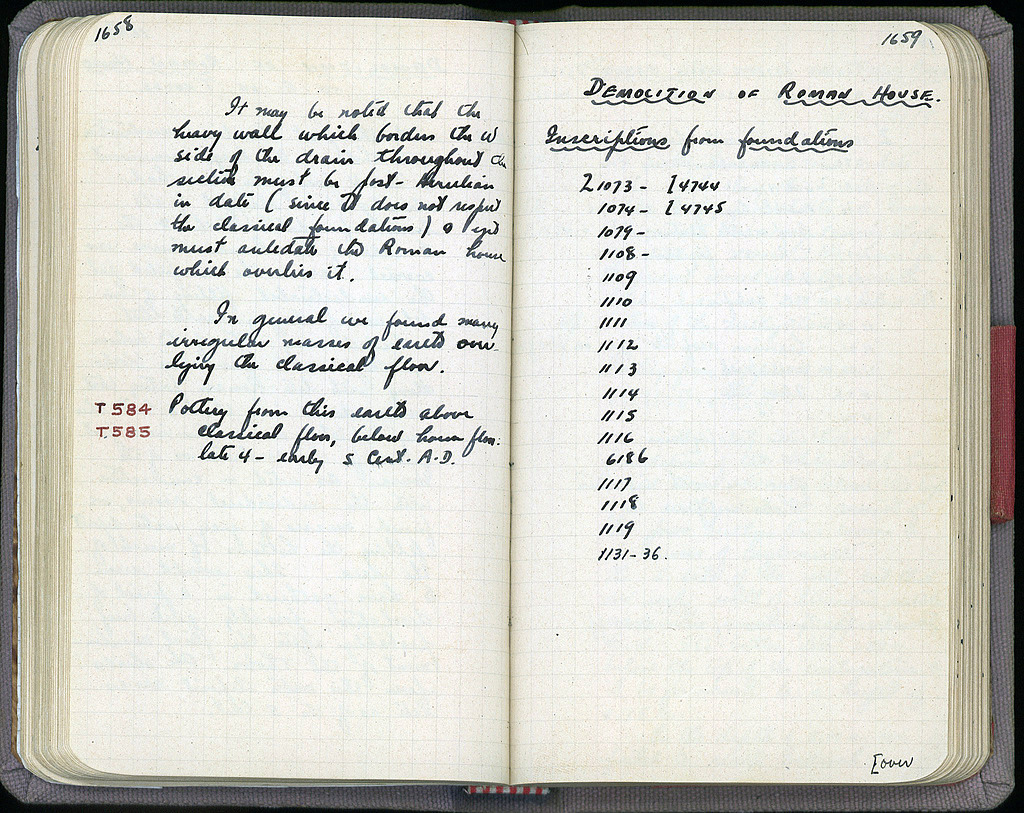 1658
It may be noted that the
heavy wall which borders the W
side of the drain throughout the
section must be post-Herulian
in date (since it does not respect
the classical foundations) & yet
must antedate the Roman house
which overlies it.
In general we found many
irregular masses of earth over-
lying the classical floor.
T 584 Pottery from this earth above
T 585 classical floor, below house floor:
late 4 - early 5 Cent. A.D.
1659
DEMOLITION OF ROMAN HOUSE.
Inscriptions from foundations
Σ 1073 - I 4744
1074 - I 4745
1079 -
1108 -
1109
1110
1111
1112
1113
1114
1115
1116
6186
1117
1118
1119
1131-36.
[over